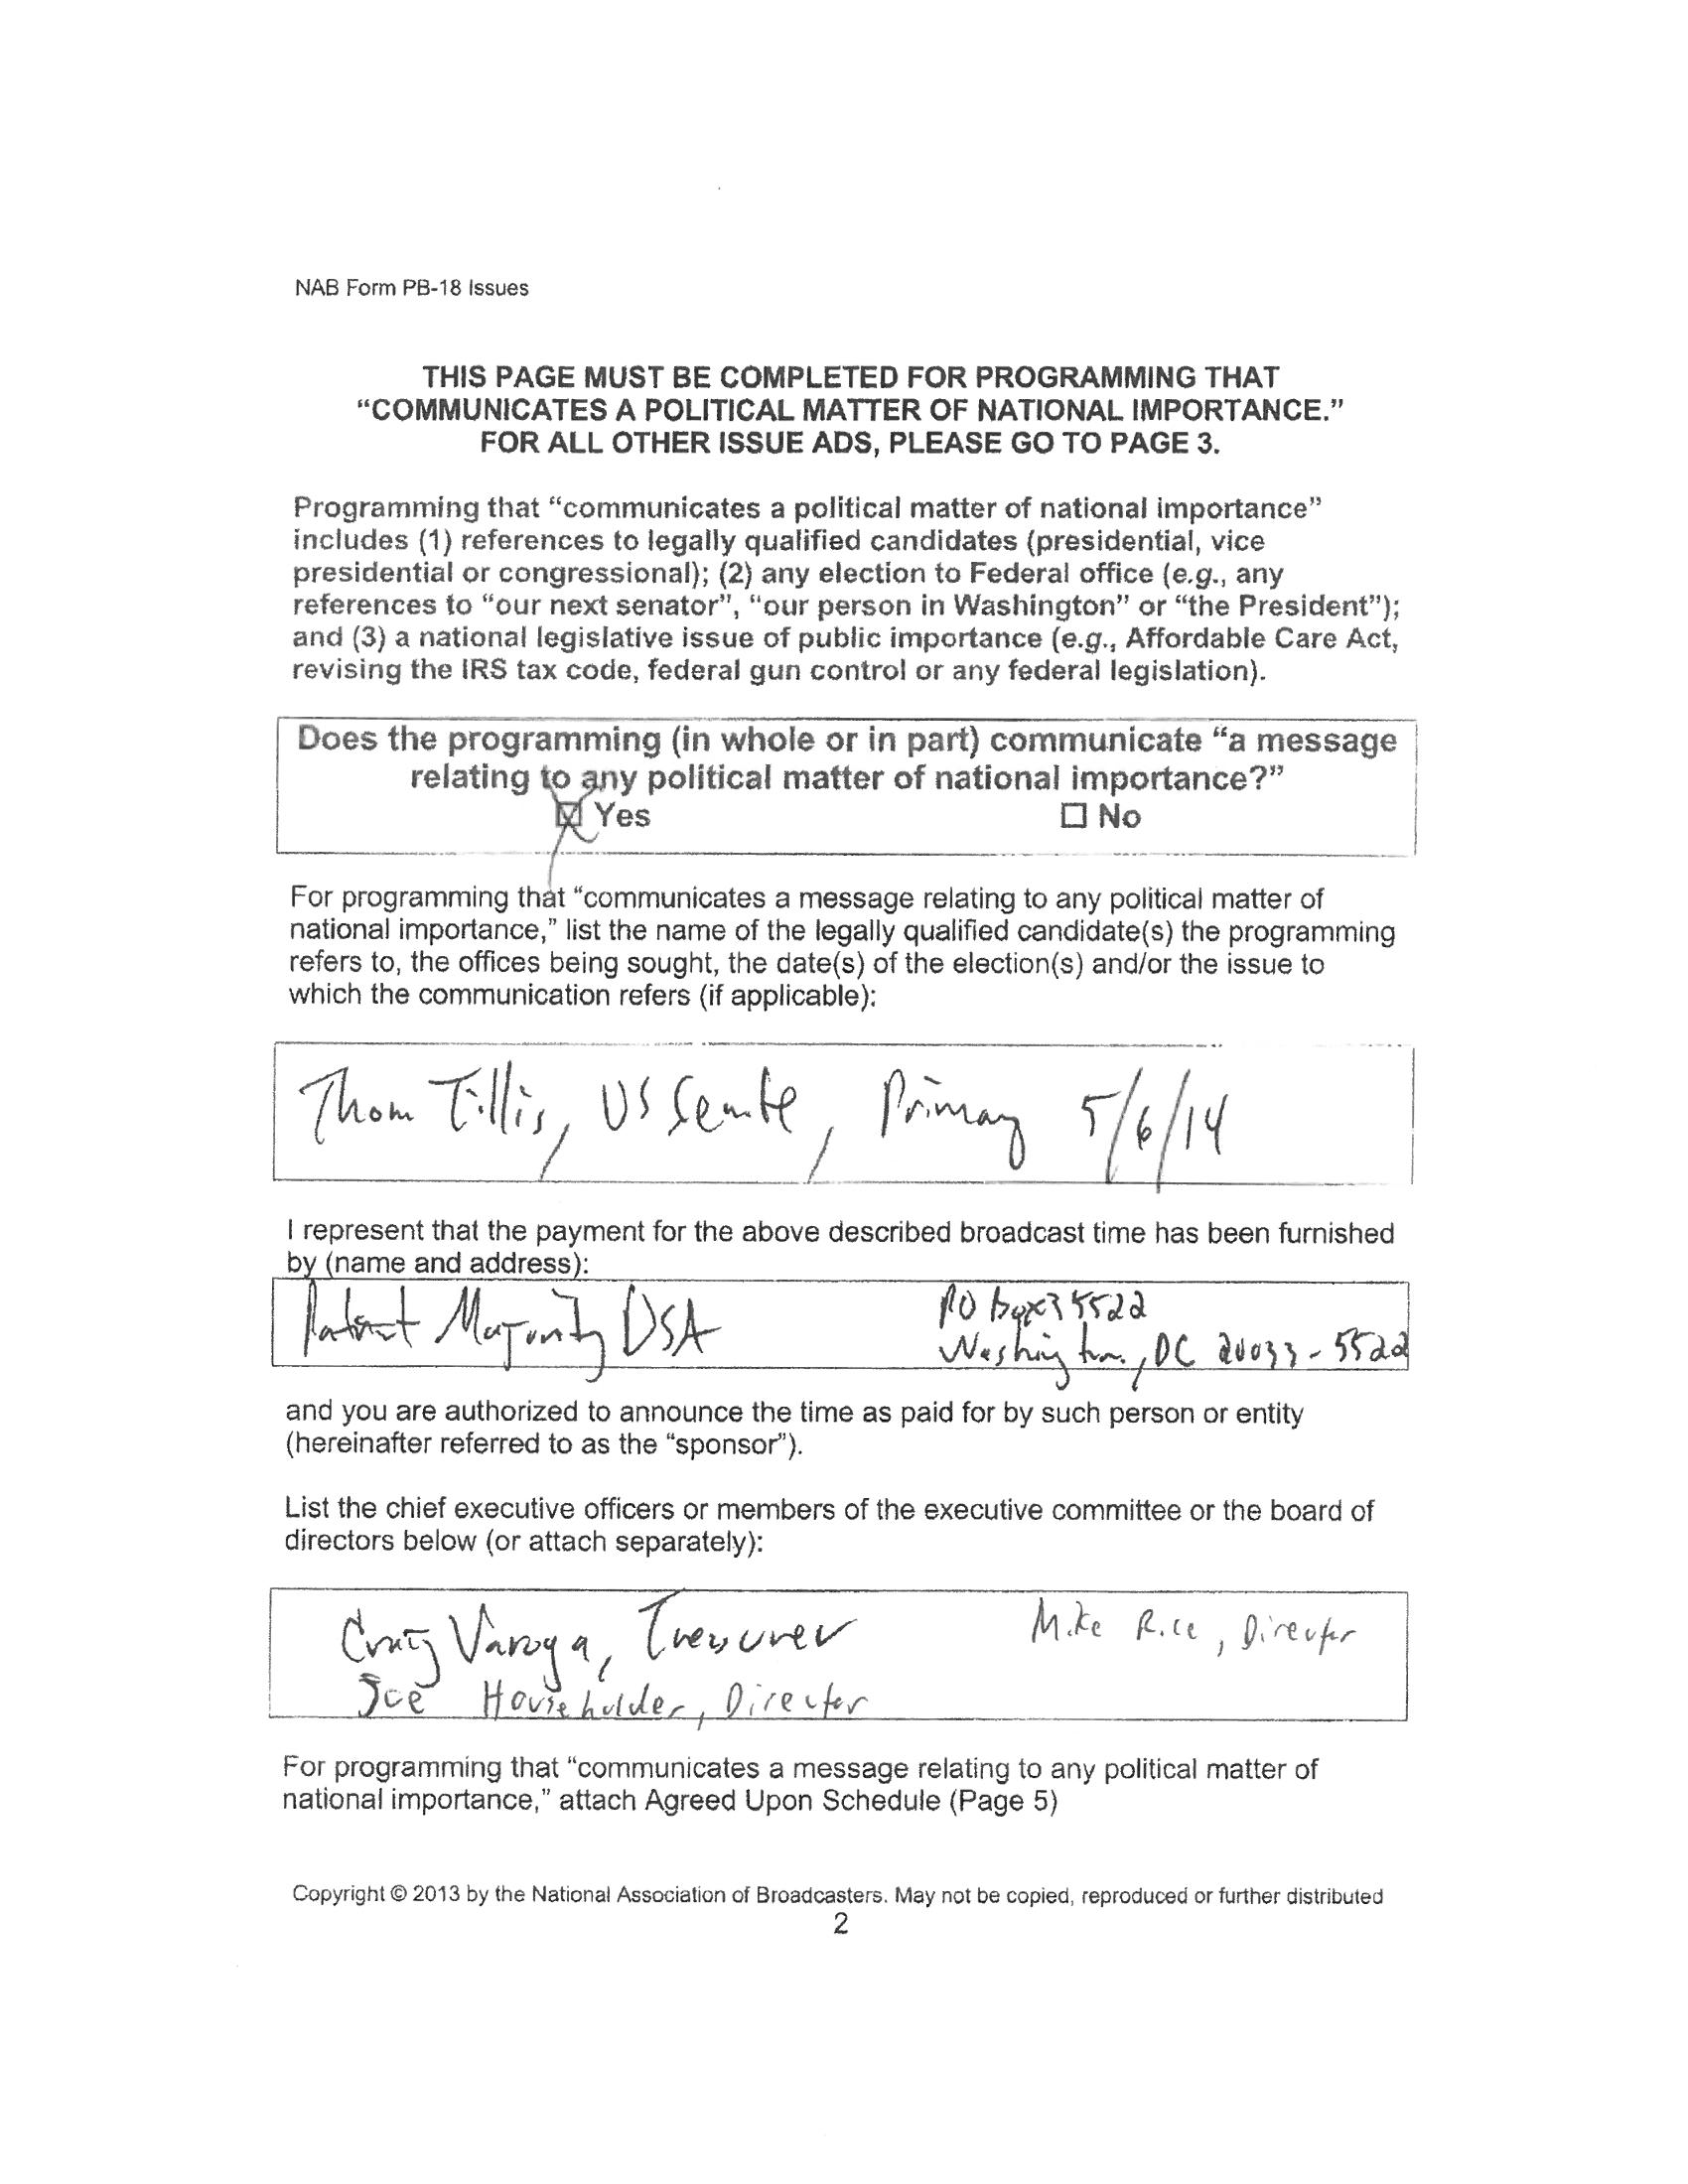 NAB Form PB-18 Issues
THIS PAGE MUST BE COMPLETED FOR PROGRAMMING THAT
“COMMUNICATES A POLITICAL MATTER OF NATIONAL IMPORTANCE.”
FOR ALL OTHER ISSUE ADS, PLEASE GO TO PAGE 3.
Programming that “communicates a political matter of national importance”
includes (1) references to legally qualified candidates (presidential, vice
presidential or congressional); (2) any election to Federal office (e.g., any
references to “our next senator”, “our person in Washington” or “the President”);
and (3) a national legislative issue of public importance (e.g., Affordable Care Act,
revising the IRS tax code, federal gun control or any federal legislation).
Does the programming (in whole or in part) communicate “a message
relating to any political matter of national importance?”
☒ Yes ☐ No
For programming that “communicates a message relating to any political matter of
national importance,” list the name of the legally qualified candidate(s) the programming
refers to, the offices being sought, the date(s) of the election(s) and/or the issue to
which the communication refers (if applicable):
Thom Tillis, US Senate, Primary 5/6/14
I represent that the payment for the above described broadcast time has been furnished
by (name and address):
Patriot Majority USA PO Box 35522
Washington, DC 20033-5522
and you are authorized to announce the time as paid for by such person or entity
(hereinafter referred to as the “sponsor”).
List the chief executive officers or members of the executive committee or the board of
directors below (or attach separately):
Craig Varoga, Treasurer Mike Rice, Director
Joe Householder, Director
For programming that “communicates a message relating to any political matter of
national importance,” attach Agreed Upon Schedule (Page 5)
Copyright © 2013 by the National Association of Broadcasters. May not be copied, reproduced or further distributed
2